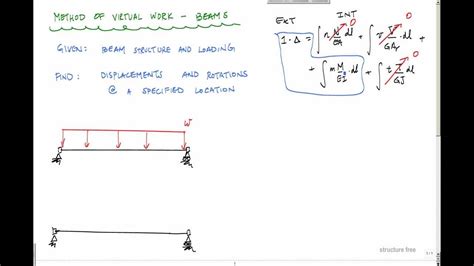 METHOD OF VIRTUAL WORK - BEAMS
GIVEN: BEAM STRUCTURE AND LOADING
FIND: DISPLACEMENTS AND ROTATIONS
@ A SPECIFIED LOCATION
EXT INT
1·Δ = ∫ n N/EA dl + ∫ v V/GAr · dl +
+ ∫ m M/EI dl + ∫ t T/GJ · dl
0 0 0
w
structure free